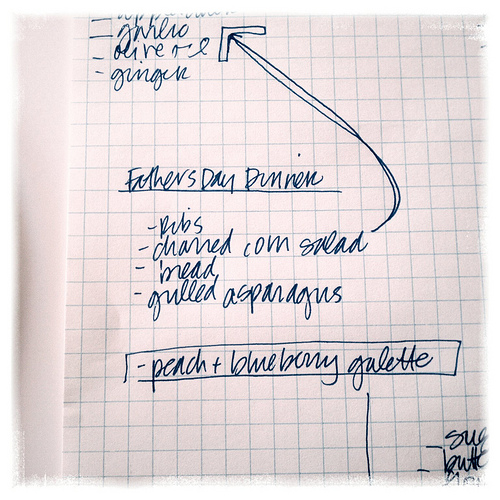 - garlic
- olive oil
- ginger
Fathers Day Dinner
- Ribs
- charred corn salad
- bread
- grilled asparagus
- peach + blueberry galette
- sug
- butte